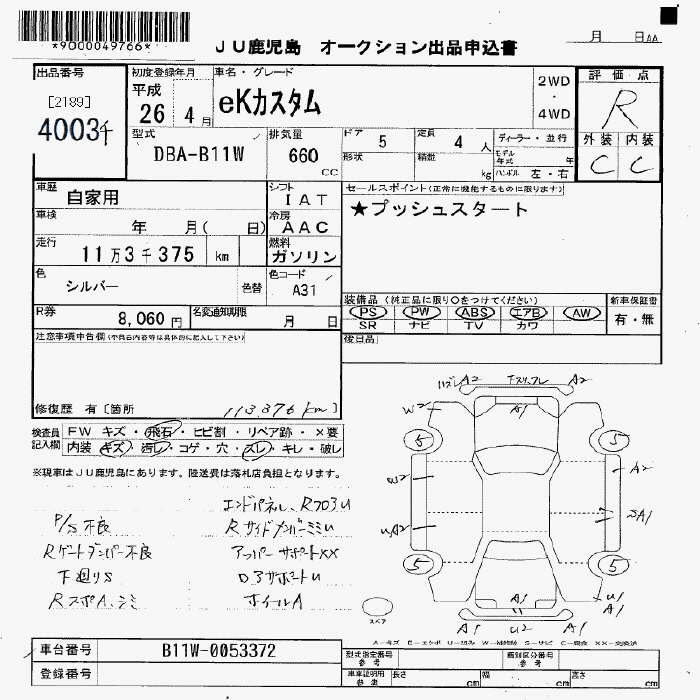 *9000049766*
JU鹿児島 オークション出品申込書
月 日
出品番号
[2189]
4003千
初度登録年月
平成
26 4月
車名・グレード
eKカスタム
2WD
・
4WD
評価点
R
外装 内装
C C
型式
DBA-B11W
排気量
660 CC
ドア 5
定員 4 人
形状
積載 kg
ディーラー・並行
モデル年式 年
ハンドル 左・右
車歴
自家用
シフト
IAT
セールスポイント(正常に機能するものに限ります)
★プッシュスタート
車検
年 月( 日)
冷房
AAC
走行
11万3千375 km
燃料
ガソリン
色
シルバー
色替
色コード
A31
R券
8,060円
名変通知期限
月 日
装備品(純正品に限り○をつけてください)
PS PW ABS エアB AW
SR ナビ TV カワ
新車保証書
有・無
後日品
注意事項申告欄(不具合内容等は具体的に記入して下さい)
修復歴 有[箇所
113,376 km]
検査員記入欄
FW キズ・飛石・ヒビ割・リペア跡・X要
内装 キズ・汚レ・コゲ・穴・スレ・キレ・破レ
※現車はJU鹿児島にあります。陸送費は落札店負担となります。
P/S 不良
Rゲートダンパー不良
下廻りS
エンドパネル、RフロアU
アッパーサポートXX
ホイールA
A2
A1
A2
W2
5 5
A2
A1
5 5
スペア
A1 U2 A1
U1
A1
車台番号
B11W-0053372
登録番号
型式指定番号
参考
類別区分番号
参考
車庫証明用
参考
長さ cm 幅 cm 高さ cm